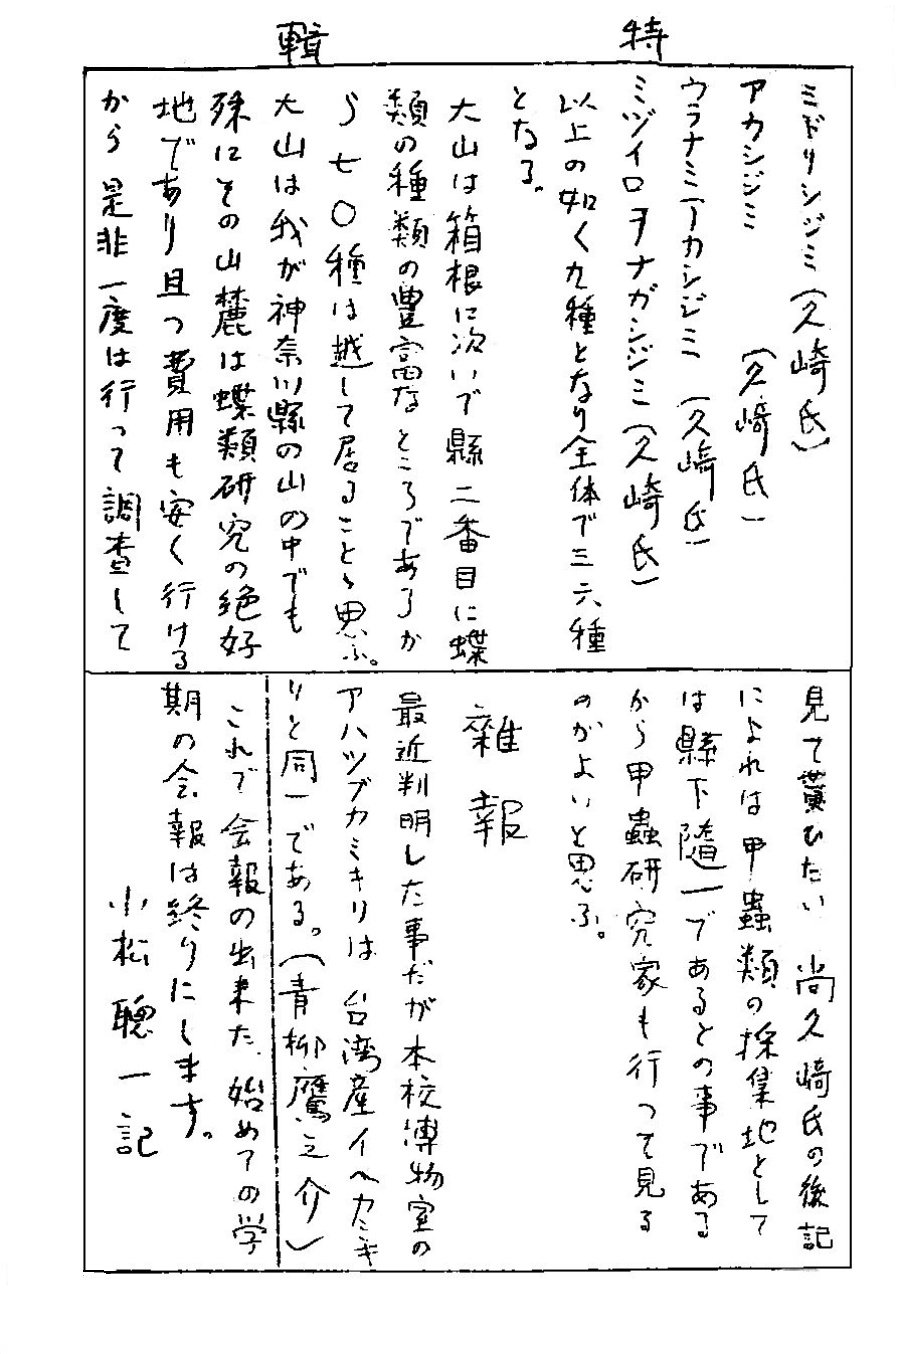 特輯
ミドリシジミ(久崎氏)
アカシジミ(久崎氏)
ウラナミアカシジミ(久崎氏)
ミヅイロヲナガシジミ(久崎氏)
以上の如く九種となり全体で三六種
となる。
大山は箱根に次いで縣二番目に蝶
類の種類の豊富なところであるか
ら七〇種は越して居ることゝ思ふ。
大山は我が神奈川縣の山の中でも
殊にその山麓は蝶類研究の絶好
地であり且つ費用も安く行ける
から是非一度は行って調査して
見て貰ひたい 尚久崎氏の後記
によれは甲蟲類の採集地として
は縣下隨一であるとの事である
から甲蟲研究家も行って見る
のがよいと思ふ。
雜報
最近判明した事だが本校博物室の
アハツブカミキリは台湾産イヘカミキ
リと同一である。(青柳鷹之介)
これで会報の出来た始めての学
期の会報は終りにします。
小松聰一記